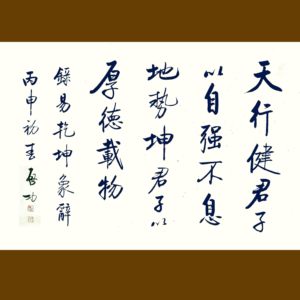 天行健君子
以自强不息
地勢坤君子以
厚德載物
錄易乾坤象辭
丙申初春 啓功